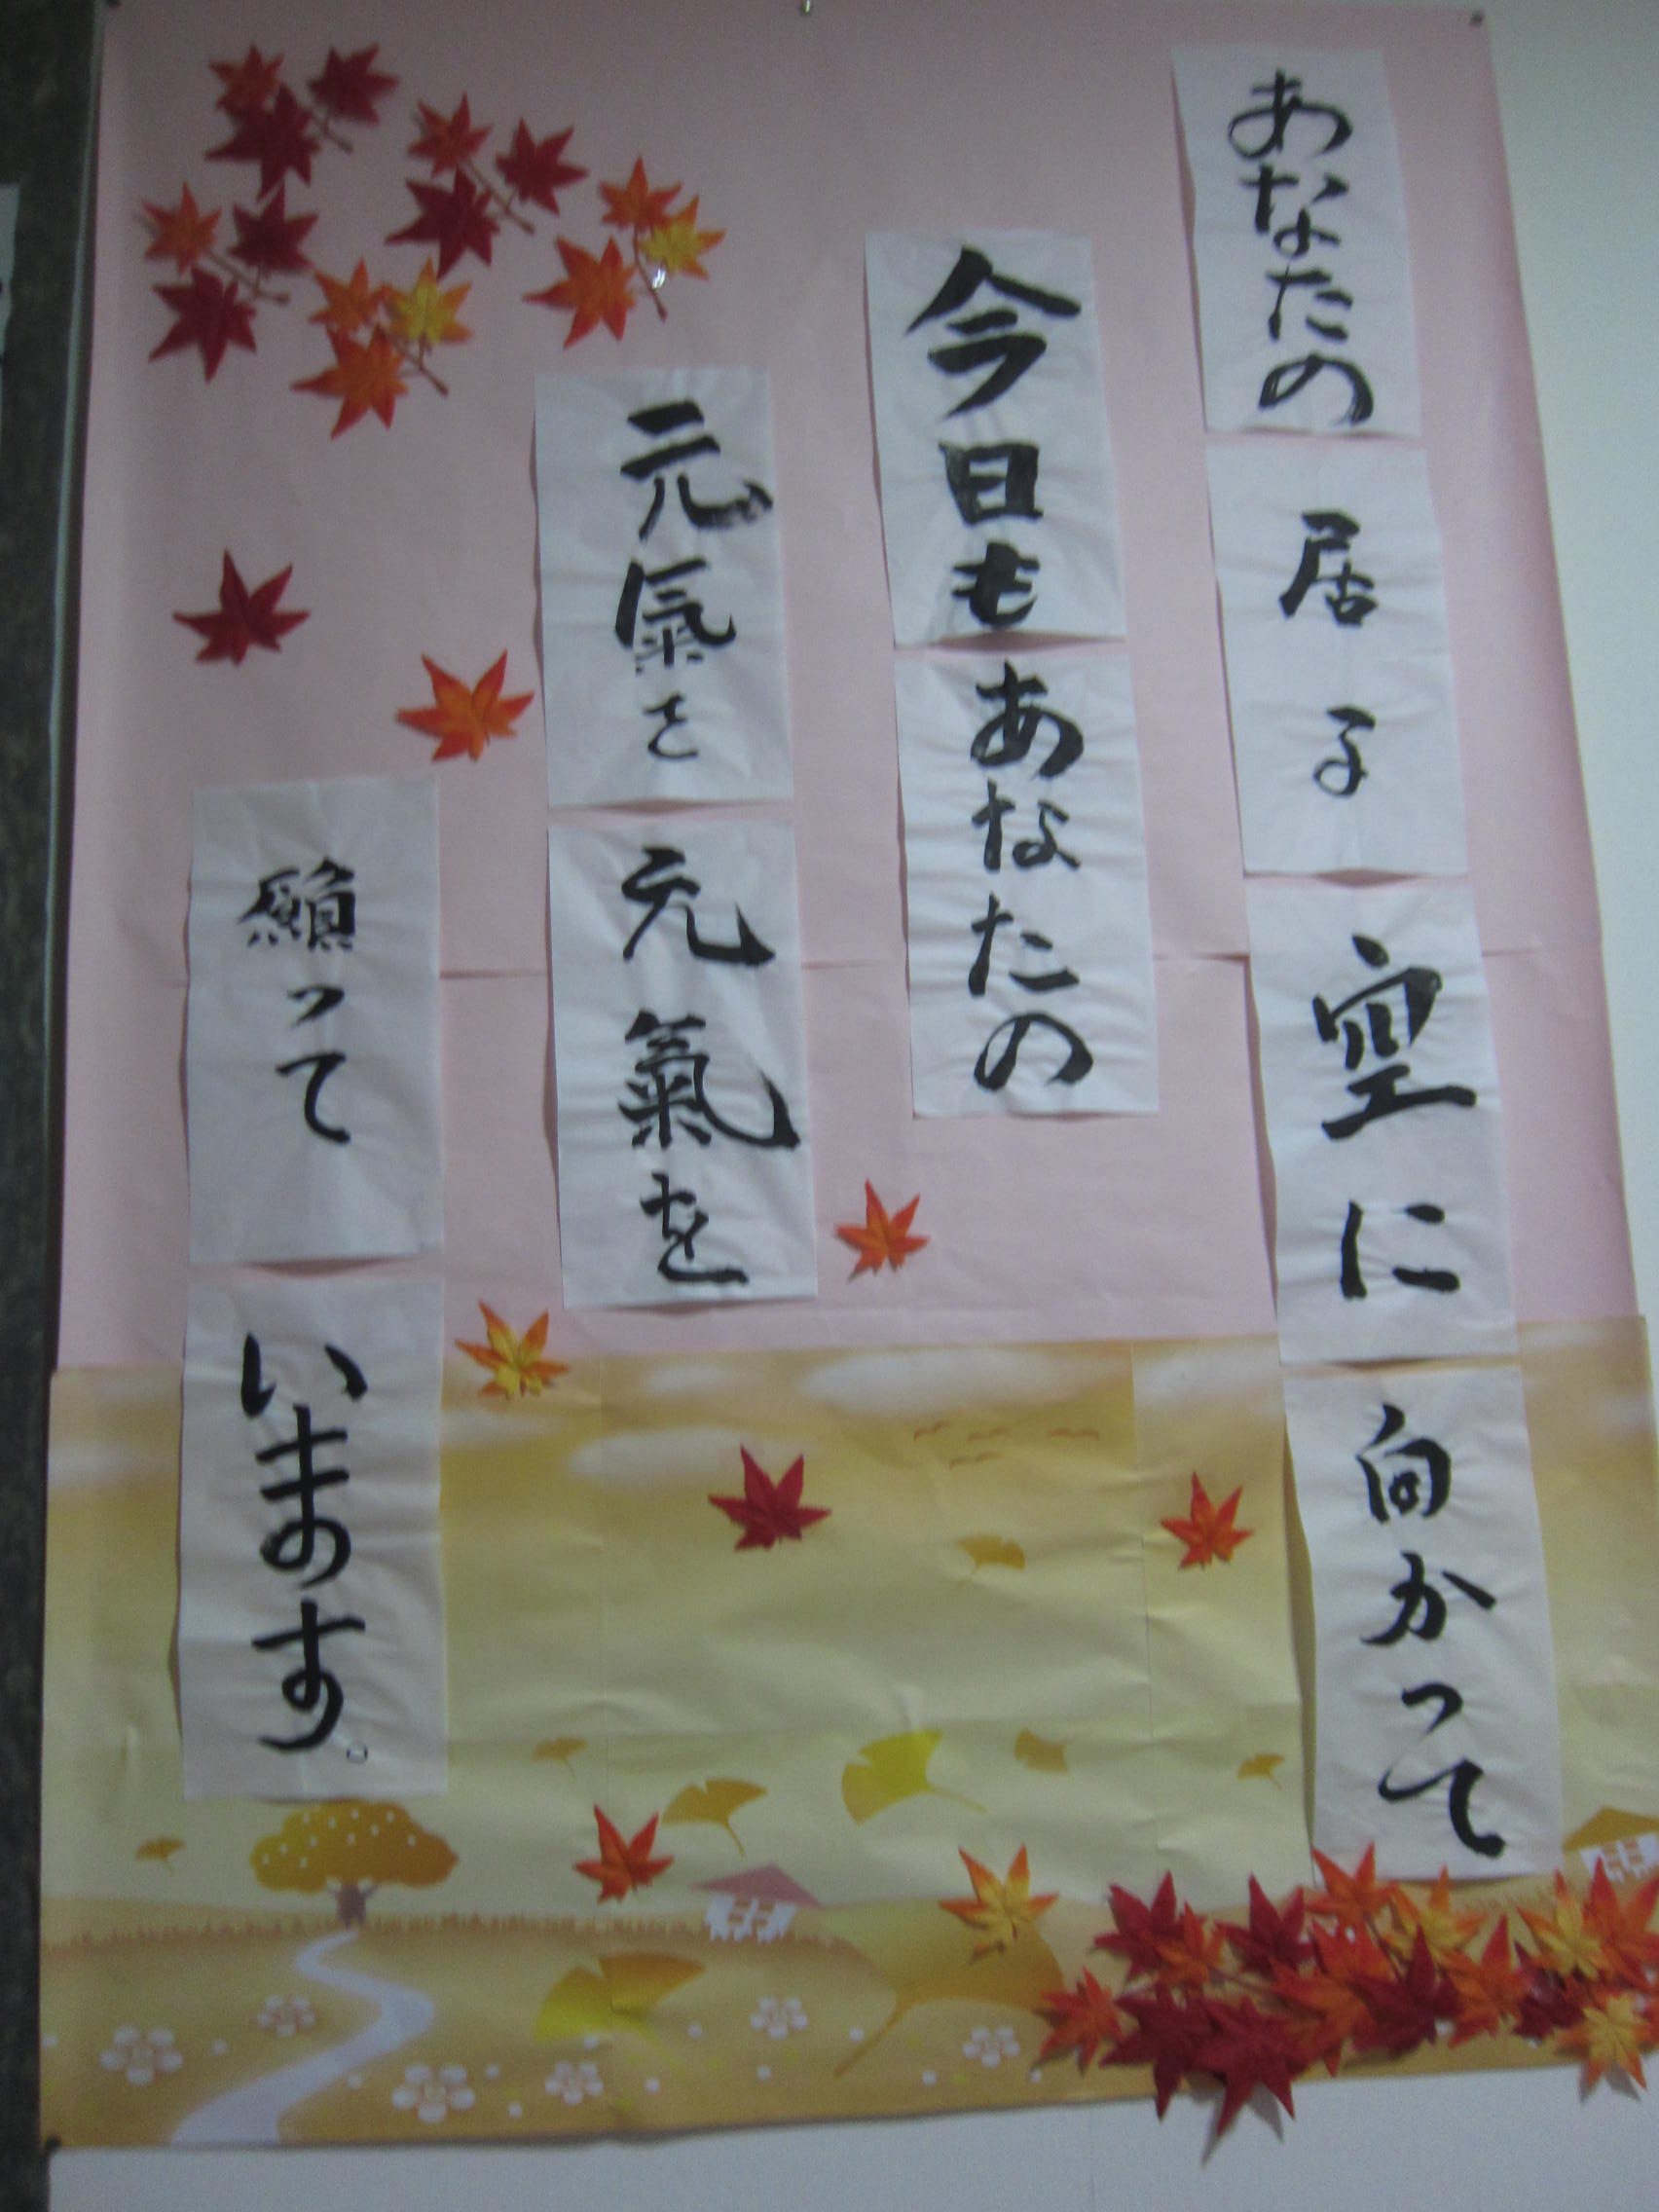 あなたの居る空に向かって
今日もあなたの
元氣を元氣を
願って
います。